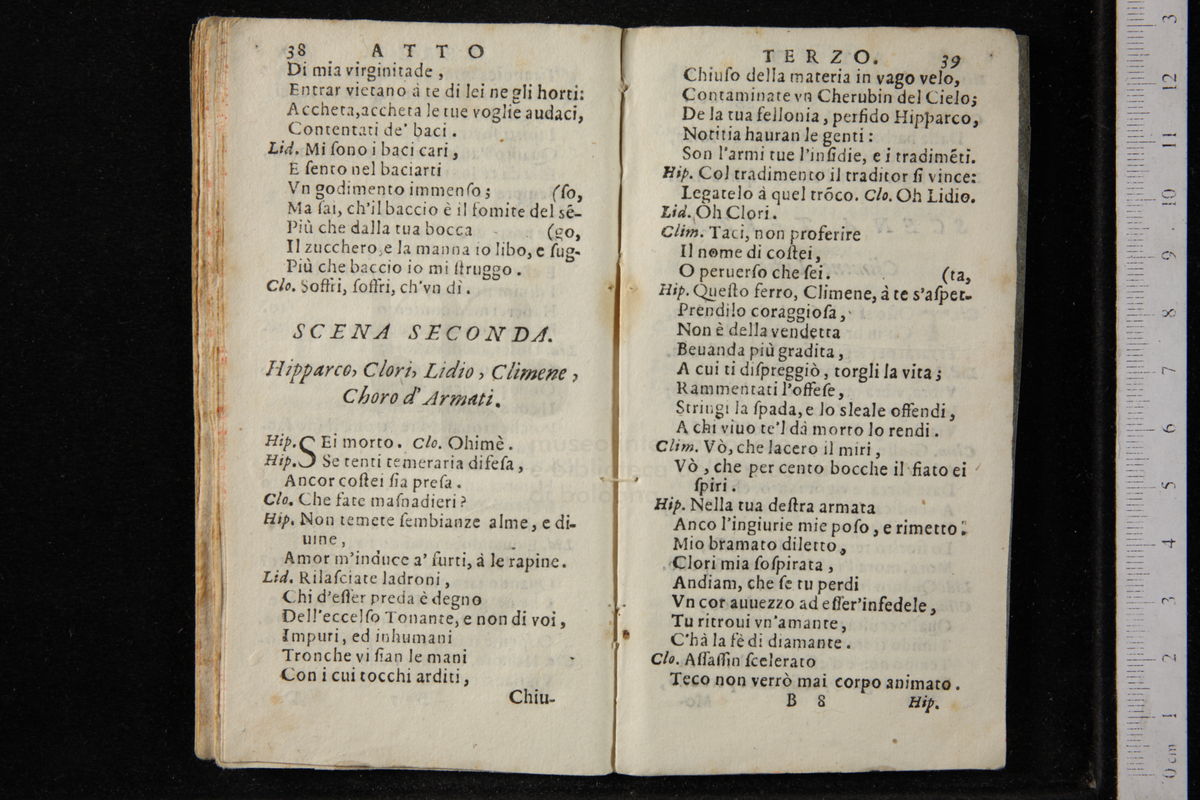 38 ATTO
Di mia virginitade,
Entrar vietano à te di lei ne gli horti:
Accheta,accheta le tue voglie audaci,
Contentati de' baci.
Lid. Mi ſono i baci cari,
E ſento nel baciarti
Vn godimento immenſo; (ſo,
Ma ſai, ch'il baccio è il fomite del sē-
Più che dalla tua bocca (go,
Il zucchero,e la manna io libo, e ſug-
Più che baccio io mi ſtruggo.
Clo. Soffri, ſoffri, ch'vn dì.
SCENA SECONDA.
Hipparco, Clori, Lidio, Climene,
Choro d'Armati.
Hip. SEi morto. Clo. Ohimè.
Hip. Se tenti temeraria difeſa,
Ancor coſtei ſia preſa.
Clo. Che fate maſnadieri?
Hip. Non temete ſembianze alme, e di-
uine,
Amor m'induce a' furti, à le rapine.
Lid. Rilaſciate ladroni,
Chi d'eſſer preda è degno
Dell'eccelſo Tonante, e non di voi,
Impuri, ed inhumani
Tronche vi ſian le mani
Con i cui tocchi arditi,
Chiu-
TERZO. 39
Chiuſo della materia in vago velo,
Contaminate vn Cherubin del Cielo;
De la tua fellonia, perfido Hipparco,
Notitia hauran le genti:
Son l'armi tue l'inſidie, e i tradimēti.
Hip. Col tradimento il traditor ſi vince:
Legatelo à quel trōco. Clo. Oh Lidio.
Lid. Oh Clori.
Clim. Taci, non proferire
Il nome di coſtei,
O peruerſo che ſei. (ta,
Hip. Queſto ferro, Climene, à te s'aſpet-
Prendilo coraggioſa,
Non è della vendetta
Beuanda più gradita,
A cui ti diſpreggiò, torgli la vita;
Rammentati l'offeſe,
Stringi la ſpada, e lo sleale offendi,
A chi viuo te'l dà morto lo rendi.
Clim. Vò, che lacero il miri,
Vò, che per cento bocche il fiato ei
ſpiri.
Hip. Nella tua deſtra armata
Anco l'ingiurie mie poſo, e rimetto:
Mio bramato diletto,
Clori mia ſoſpirata,
Andiam, che ſe tu perdi
Vn cor auuezzo ad eſſer'infedele,
Tu ritroui vn'amante,
C'hà la fè di diamante.
Clo. Aſſaſſin ſcelerato
Teco non verrò mai corpo animato.
B 8 Hip.